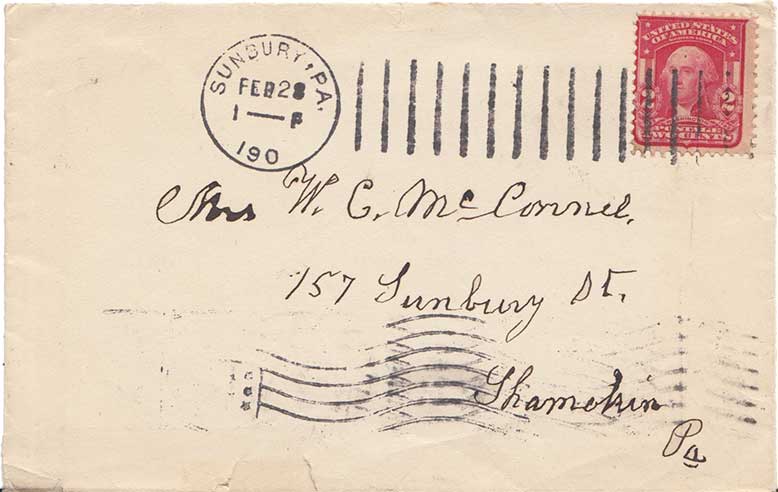 SUNBURY, PA.
FEB 28
1 — P
190
UNITED STATES
OF AMERICA
2 2
POSTAGE
TWO CENTS
Mrs W. C. McConnel.
157 Sunbury St.
Shamokin
Pa